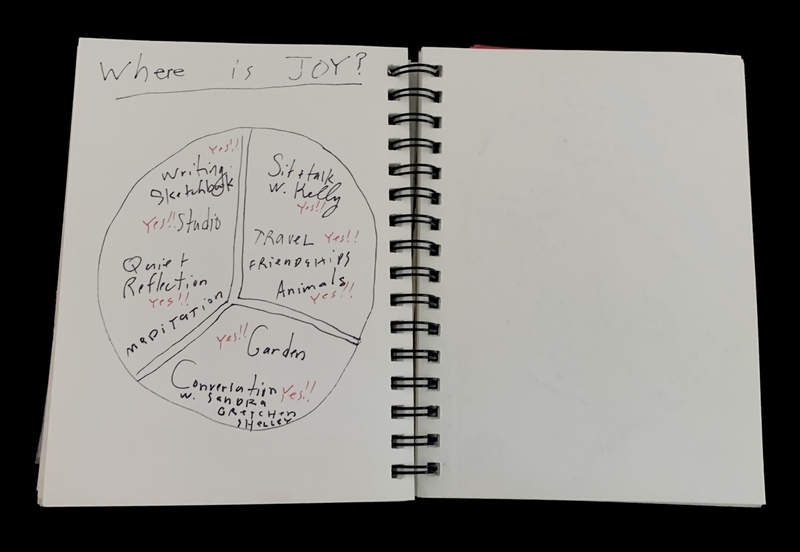 Where is JOY?
Yes!!
Writing.
Sketchbook
Yes!! Studio
Quiet
Reflection
Yes!!
MEDITATION
Sit & talk
W. Kelly
Yes!!
TRAVEL Yes!!
FRIENDSHIPS
Animals
Yes!!
Yes!! Garden
Conversation Yes!!
W. SANDRA
GRETCHEN
SHELLEY